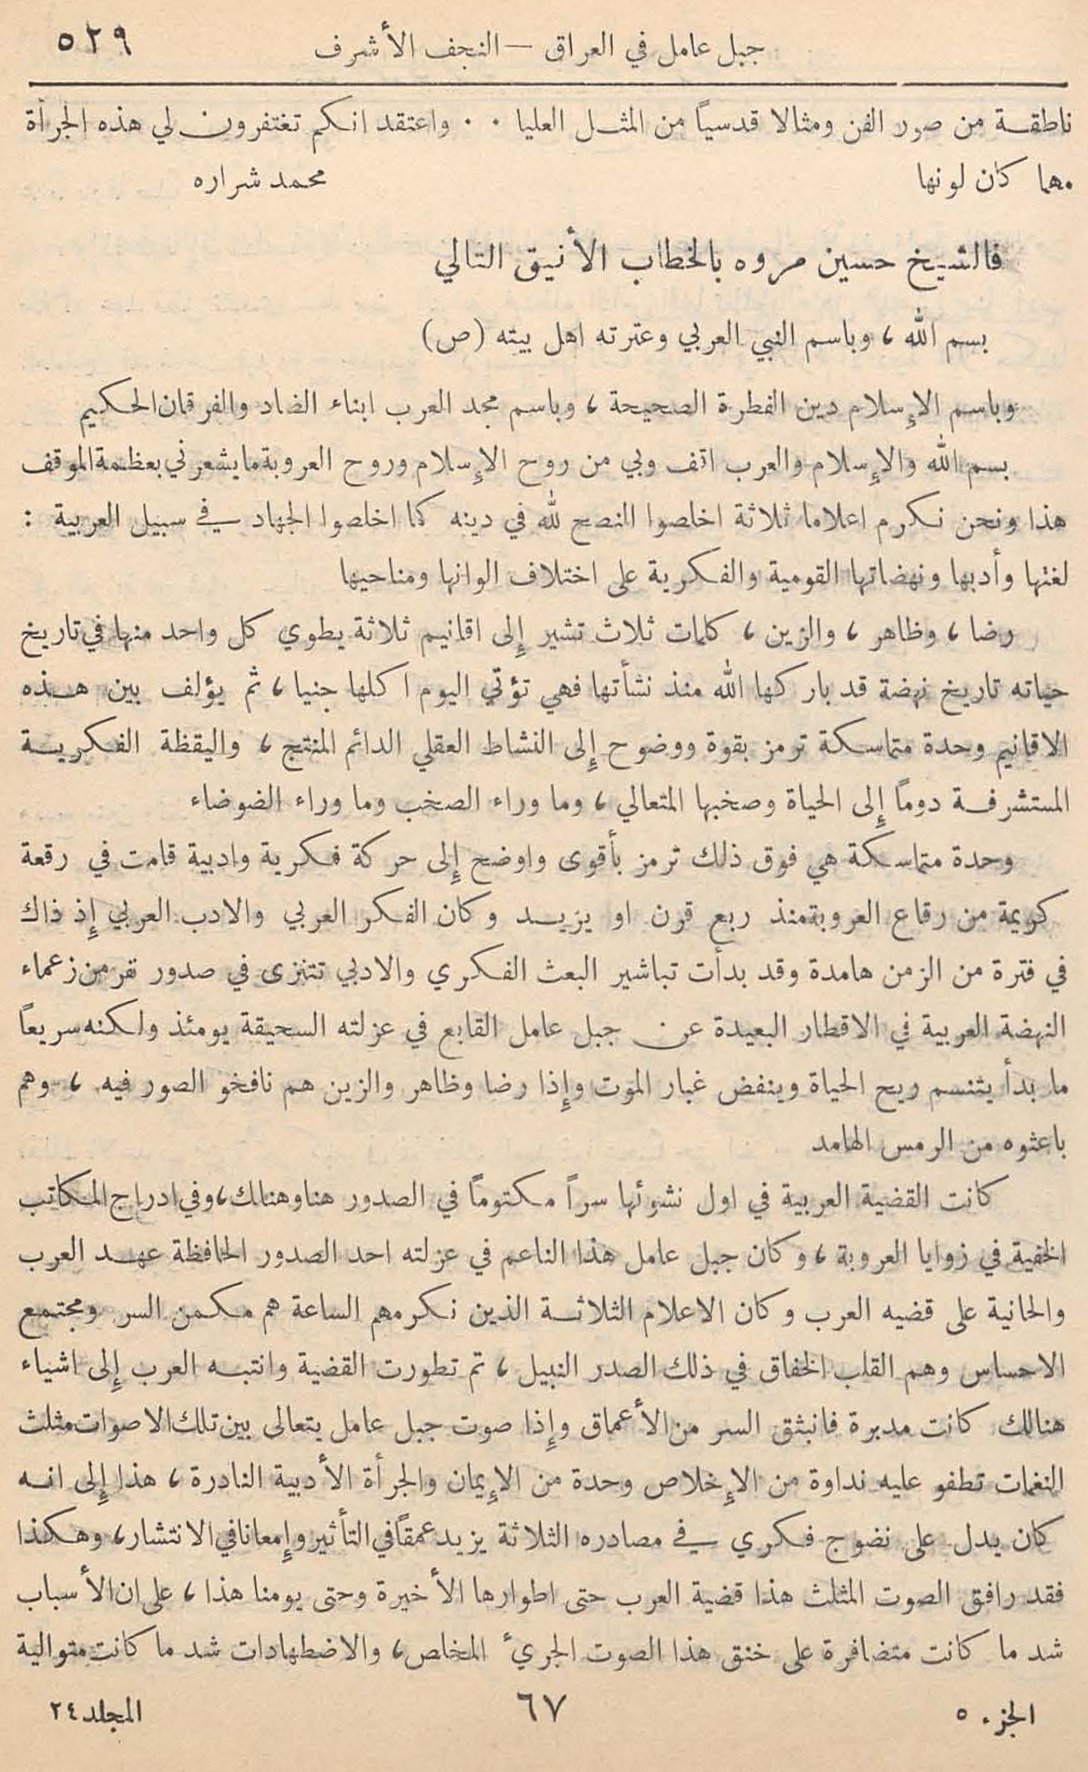 جبل عامل في العراق — النجف الأشرف ٥٢٩
ناطقة من صور الفن ومثالا قدسياً من المثل العليا ٠ ٠ واعتقد انكم تغتفرون لي هذه الجرأة
مهما كان لونها محمد شراره
فالشيخ حسين مروه بالخطاب الأنيق التالي
بسم الله ، وباسم النبي العربي وعترته اهل بيته (ص)
وباسم الإسلام دين الفطرة الصحيحة ، وباسم مجد العرب ابناء الضاد والفرقان الحكيم
بسم الله والإسلام والعرب اقف وبي من روح الإسلام وروح العروبة ما يشعرني بعظمة الموقف
هذا ونحن نكرم اعلاما ثلاثة اخلصوا النصح لله في دينه كما اخلصوا الجهاد في سبيل العربية :
لغتها وأدبها ونهضاتها القومية والفكرية على اختلاف الوانها ومناحيها
رضا ، وظاهر ، والزين ، كلمات ثلاث تشير إلى اقانيم ثلاثة يطوي كل واحد منها في تاريخ
حياته تاريخ نهضة قد باركها الله منذ نشأتها فهي تؤتي اليوم اكلها جنيا ، ثم يؤلف بين هذه
الاقانيم وحدة متماسكة ترمز بقوة ووضوح إلى النشاط العقلي الدائم المنتج ، واليقظة الفكرية
المستشرفة دوماً إلى الحياة وصخبها المتعالي ، وما وراء الصخب وما وراء الضوضاء
وحدة متماسكة هي فوق ذلك ترمز بأقوى واوضح إلى حركة فكرية وادبية قامت في رقعة
كريمة من رقاع العروبة منذ ربع قرن او يزيد وكان الفكر العربي والادب العربي إذ ذاك
في فترة من الزمن هامدة وقد بدأت تباشير البعث الفكري والادبي تتنزى في صدور نفر من زعماء
النهضة العربية في الاقطار البعيدة عن جبل عامل القابع في عزلته السحيقة يومئذ ولكنه سريعاً
ما بدأ يتنسم ريح الحياة وينفض غبار الموت وإذا رضا وظاهر والزين هم نافخو الصور فيه ، وهم
باعثوه من الرمس الهامد
كانت القضية العربية في اول نشوئها سراً مكتوماً في الصدور هنا وهنالك ، وفي ادراج المكاتب
الخفية في زوايا العروبة ، وكان جبل عامل هذا الناعم في عزلته احد الصدور الحافظة عهد العرب
والحانية على قضيه العرب وكان الاعلام الثلاثة الذين نكرمهم الساعة هم مكمن السر ومجتمع
الاحساس وهم القلب الخفاق في ذلك الصدر النبيل ، ثم تطورت القضية وانتبه العرب إلى اشياء
هنالك كانت مدبرة فانبثق السر من الأعماق وإذا صوت جبل عامل يتعالى بين تلك الاصوات مثلث
النغمات تطفو عليه نداوة من الإخلاص وحدة من الإيمان والجرأة الأدبية النادرة ، هذا إلى انه
كان يدل على نضوج فكري في مصادره الثلاثة يزيد عمقاً في التأثير وإمعانا في الانتشار ، وهكذا
فقد رافق الصوت المثلث هذا قضية العرب حتى اطوارها الأخيرة وحتى يومنا هذا ، على ان الأسباب
شد ما كانت متضافرة على خنق هذا الصوت الجريء المخلص ، والاضطهادات شد ما كانت متوالية
الجزء ٥ ٦٧ المجلد ٢٤